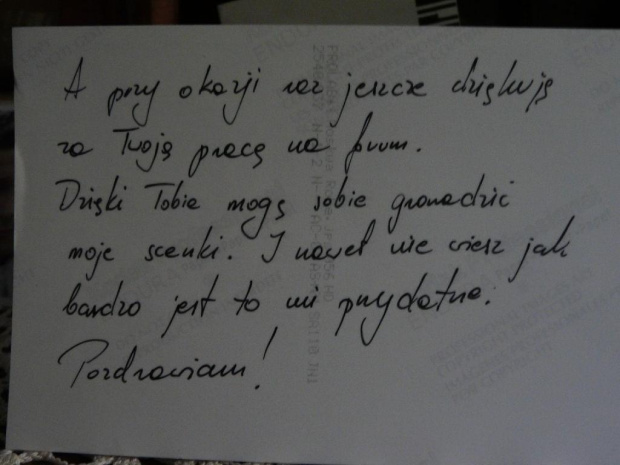 A przy okazji raz jeszcze dziękuję
za Twoją pracę na forum.
Dzięki Tobie mogę sobie gromadzić
moje scenki. I nawet nie wiesz jak
bardzo jest to mi przydatne.
Pozdrawiam!